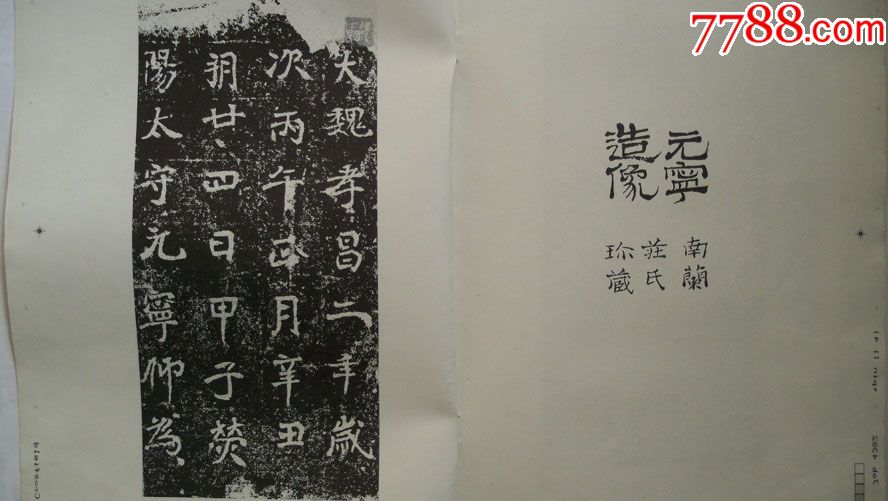 7788.com
元寧
造像
南蘭
莊氏
珎藏
大魏孝昌二年歲
次丙午正月辛丑
朔廿四日甲子熒
陽太守元寧仰爲